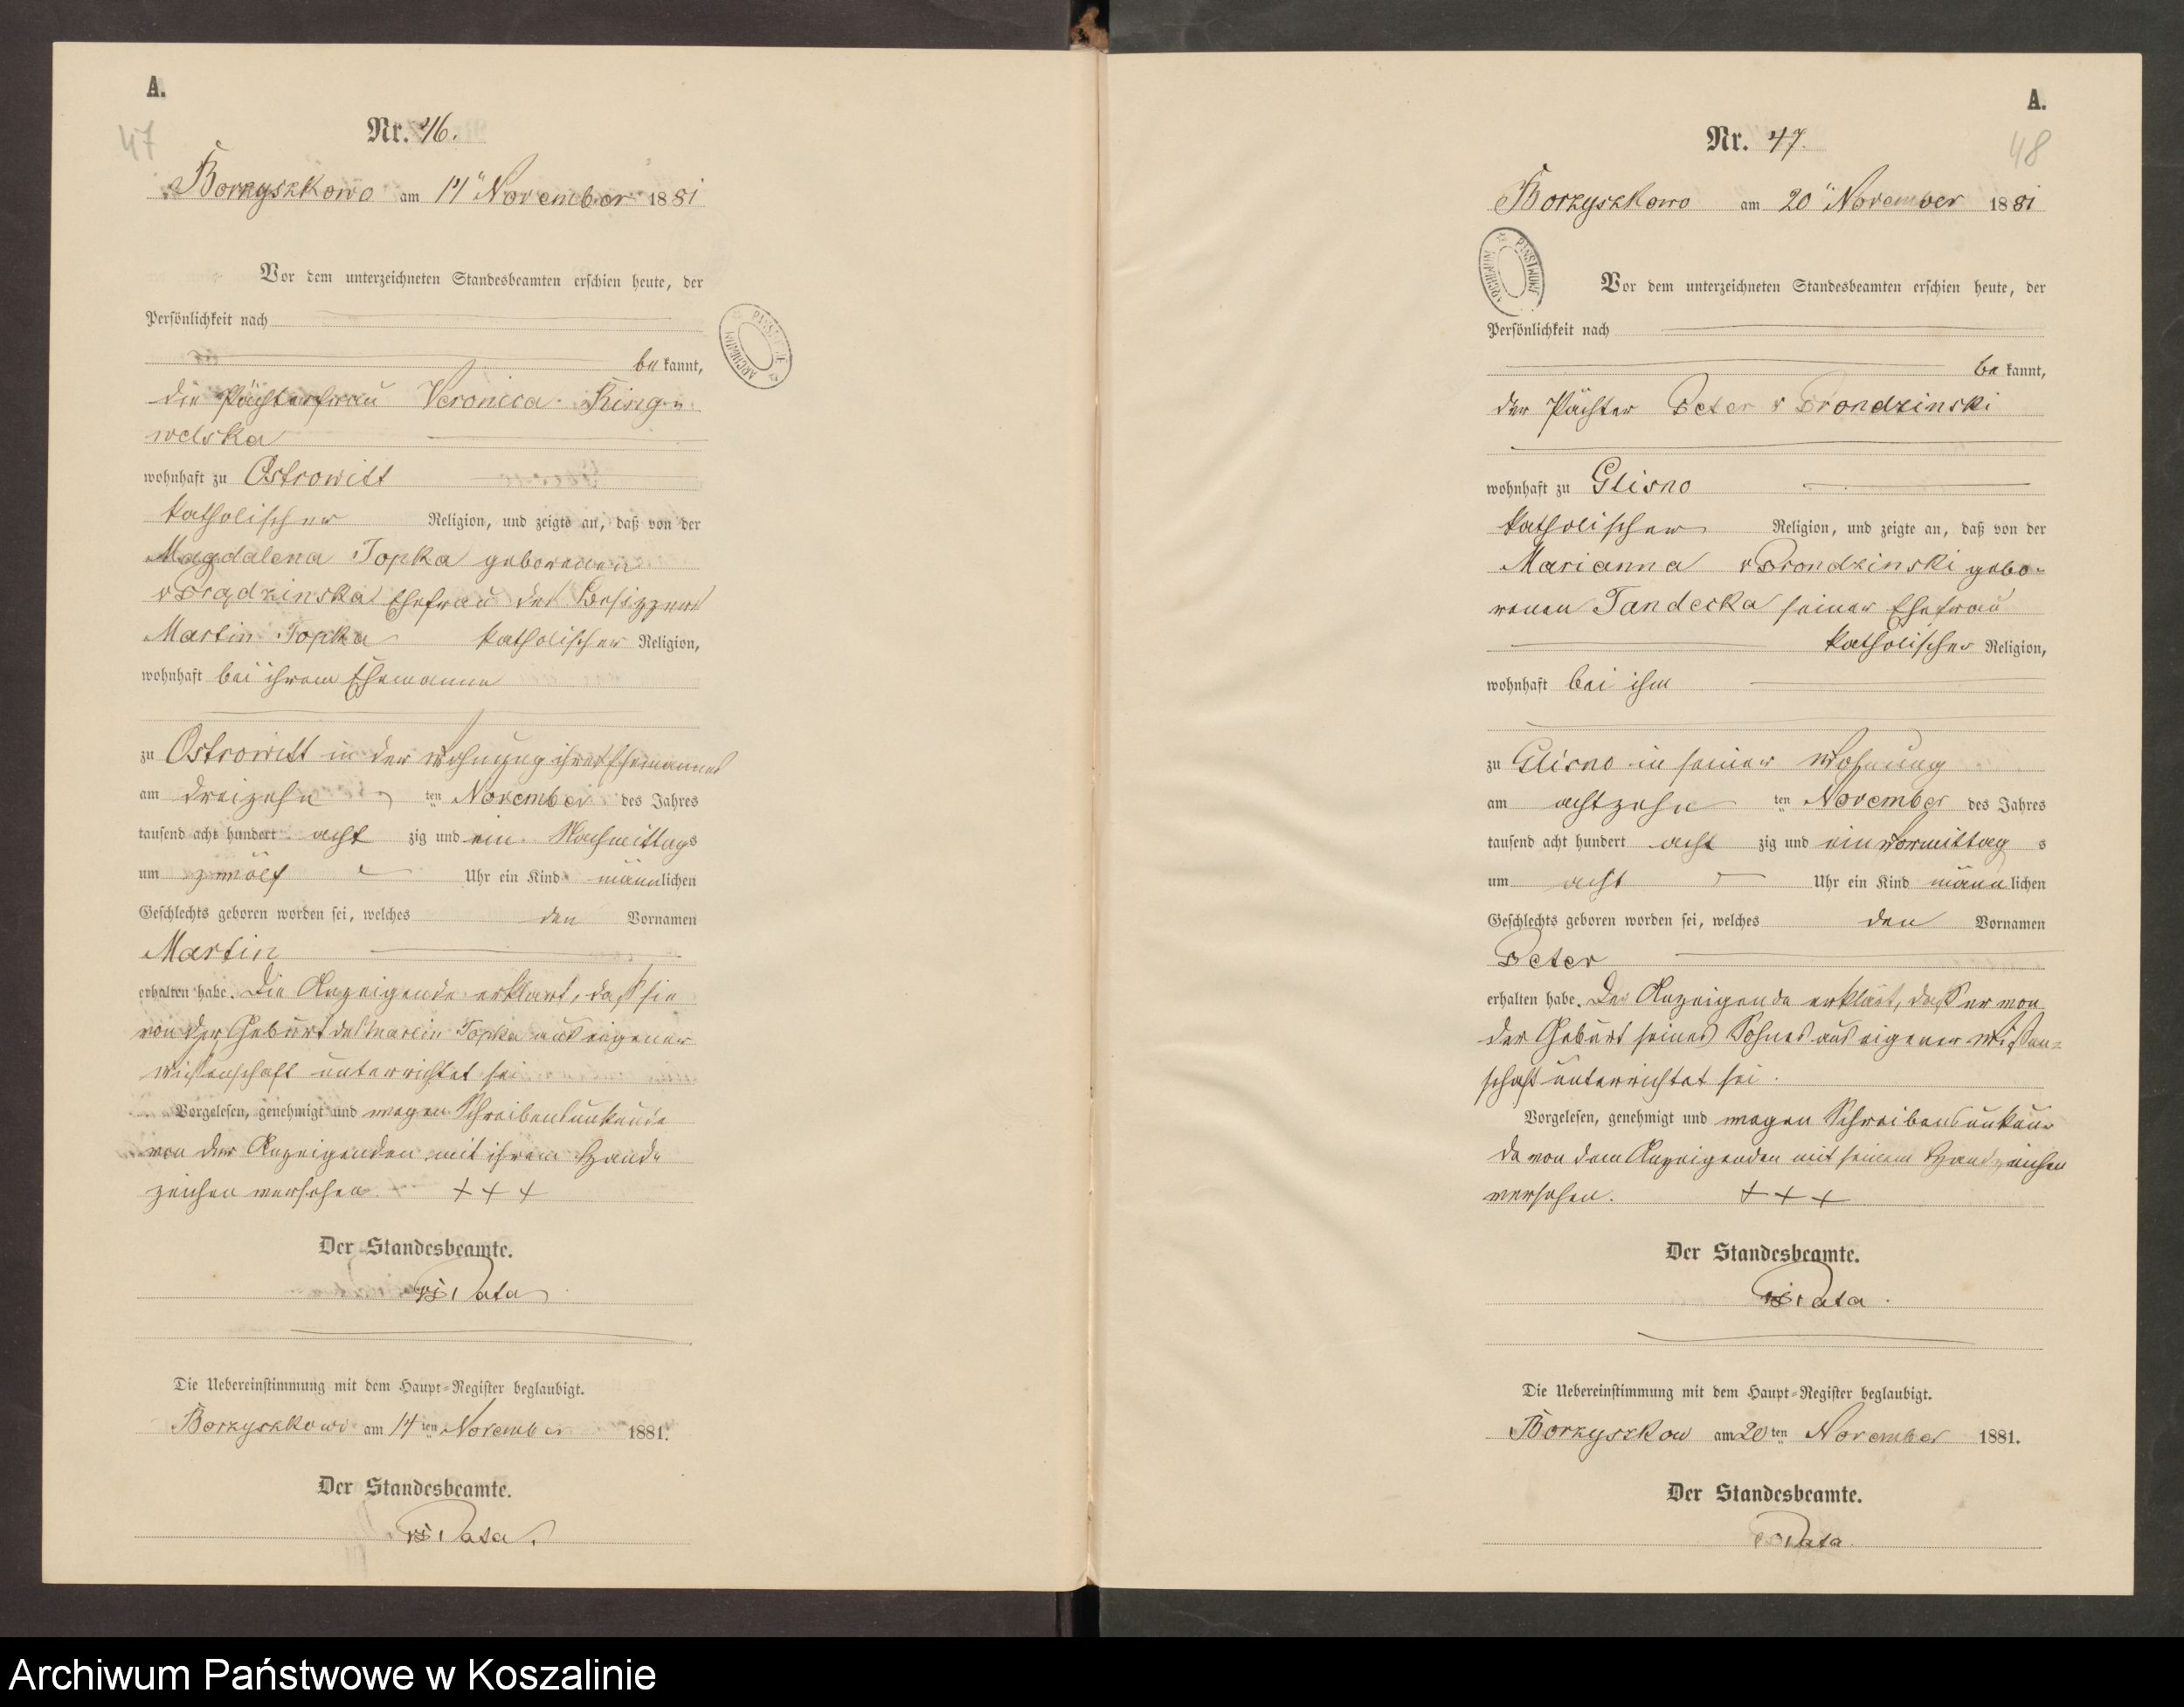 A.
47
Nr. 46.
Borzyszkowo am 14" November 1881
Vor dem unterzeichneten Standesbeamten erschien heute, der
Persönlichkeit nach
be kannt,
die Pächterfrau Veronica
welska
wohnhaft zu Ostrowitt
katholischer Religion, und zeigte an, daß von der
Magdalena Topka geborenen
Ehefrau des Besitzers
Martin Topka katholischer Religion,
wohnhaft bei ihrem Ehemanne
zu Ostrowitt in der Wohnung ihres Ehemannes
am dreizehn ten November des Jahres
tausend acht hundert acht zig und ein Nachmittags
um zwölf Uhr ein Kind männlichen
Geschlechts geboren worden sei, welches den Vornamen
Martin
erhalten habe. Die Anzeigende erklärt, daß sie
von der Geburt des Martin Topka aus eigener
Wissenschaft unterrichtet sei
Vorgelesen, genehmigt und wegen Schreibensunkunde
von der Anzeigenden mit ihrem Hand-
zeichen versehen. + + +
Der Standesbeamte.
Pata
Die Uebereinstimmung mit dem Haupt-Register beglaubigt.
Borzyszkowo am 14 ten November 1881.
Der Standesbeamte.
Pata.
ARCHIWUM PAŃSTWOWE
A.
48
Nr. 47.
Borzyszkowo am 20" November 1881
ARCHIWUM PAŃSTWOWE
Vor dem unterzeichneten Standesbeamten erschien heute, der
Persönlichkeit nach
be kannt,
der Pächter Peter v Prondzinski
wohnhaft zu Glisno
katholischer Religion, und zeigte an, daß von der
Marianna v Prondzinski gebo-
renen Tandecka seiner Ehefrau
katholischer Religion,
wohnhaft bei ihm
zu Glisno in seiner Wohnung
am achtzehn ten November des Jahres
tausend acht hundert acht zig und ein Vormittag s
um acht Uhr ein Kind männ lichen
Geschlechts geboren worden sei, welches den Vornamen
Peter
erhalten habe. Der Anzeigende erklärt, daß er von
der Geburt seines Sohnes aus eigener Wissen-
schaft unterrichtet sei.
Vorgelesen, genehmigt und wegen Schreibensunkun-
de von dem Anzeigenden mit seinem Handzeichen
versehen. + + +
Der Standesbeamte.
Pata.
Die Uebereinstimmung mit dem Haupt-Register beglaubigt.
Borzyszkow am 20 ten November 1881.
Der Standesbeamte.
Pata.
Archiwum Państwowe w Koszalinie